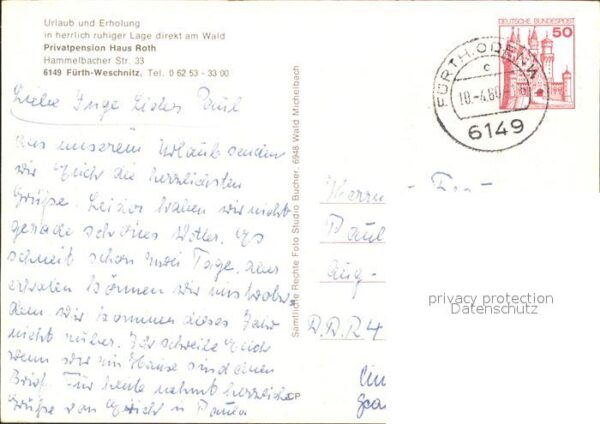 Urlaub und Erholung
in herrlich ruhiger Lage direkt am Wald
Privatpension Haus Roth
Hammelbacher Str. 33
6149 Fürth-Weschnitz, Tel. 0 62 53 - 33 00
Liebe Inge Lieber Paul
aus unserem Urlaub senden
wir Euch die herzlichsten
Grüße. Leider haben wir nicht
gerade schönes Wetter. Es
schneit schon zwei Tage, aber
erholen können wir uns
denn wir kommen dieses Jahr
nicht rüber. Ich schreibe Euch
wenn wir zu Hause sind einen
Brief. Für heute nehmt herzliche
Grüße von Erich u Paula
Sämtliche Rechte Foto Studio Bucher, 6948 Wald Michelbach
CP
DEUTSCHE BUNDESPOST
50
FÜRTH, ODENW
c
6149
Paul
D.D.R 4
privacy protection
Datenschutz